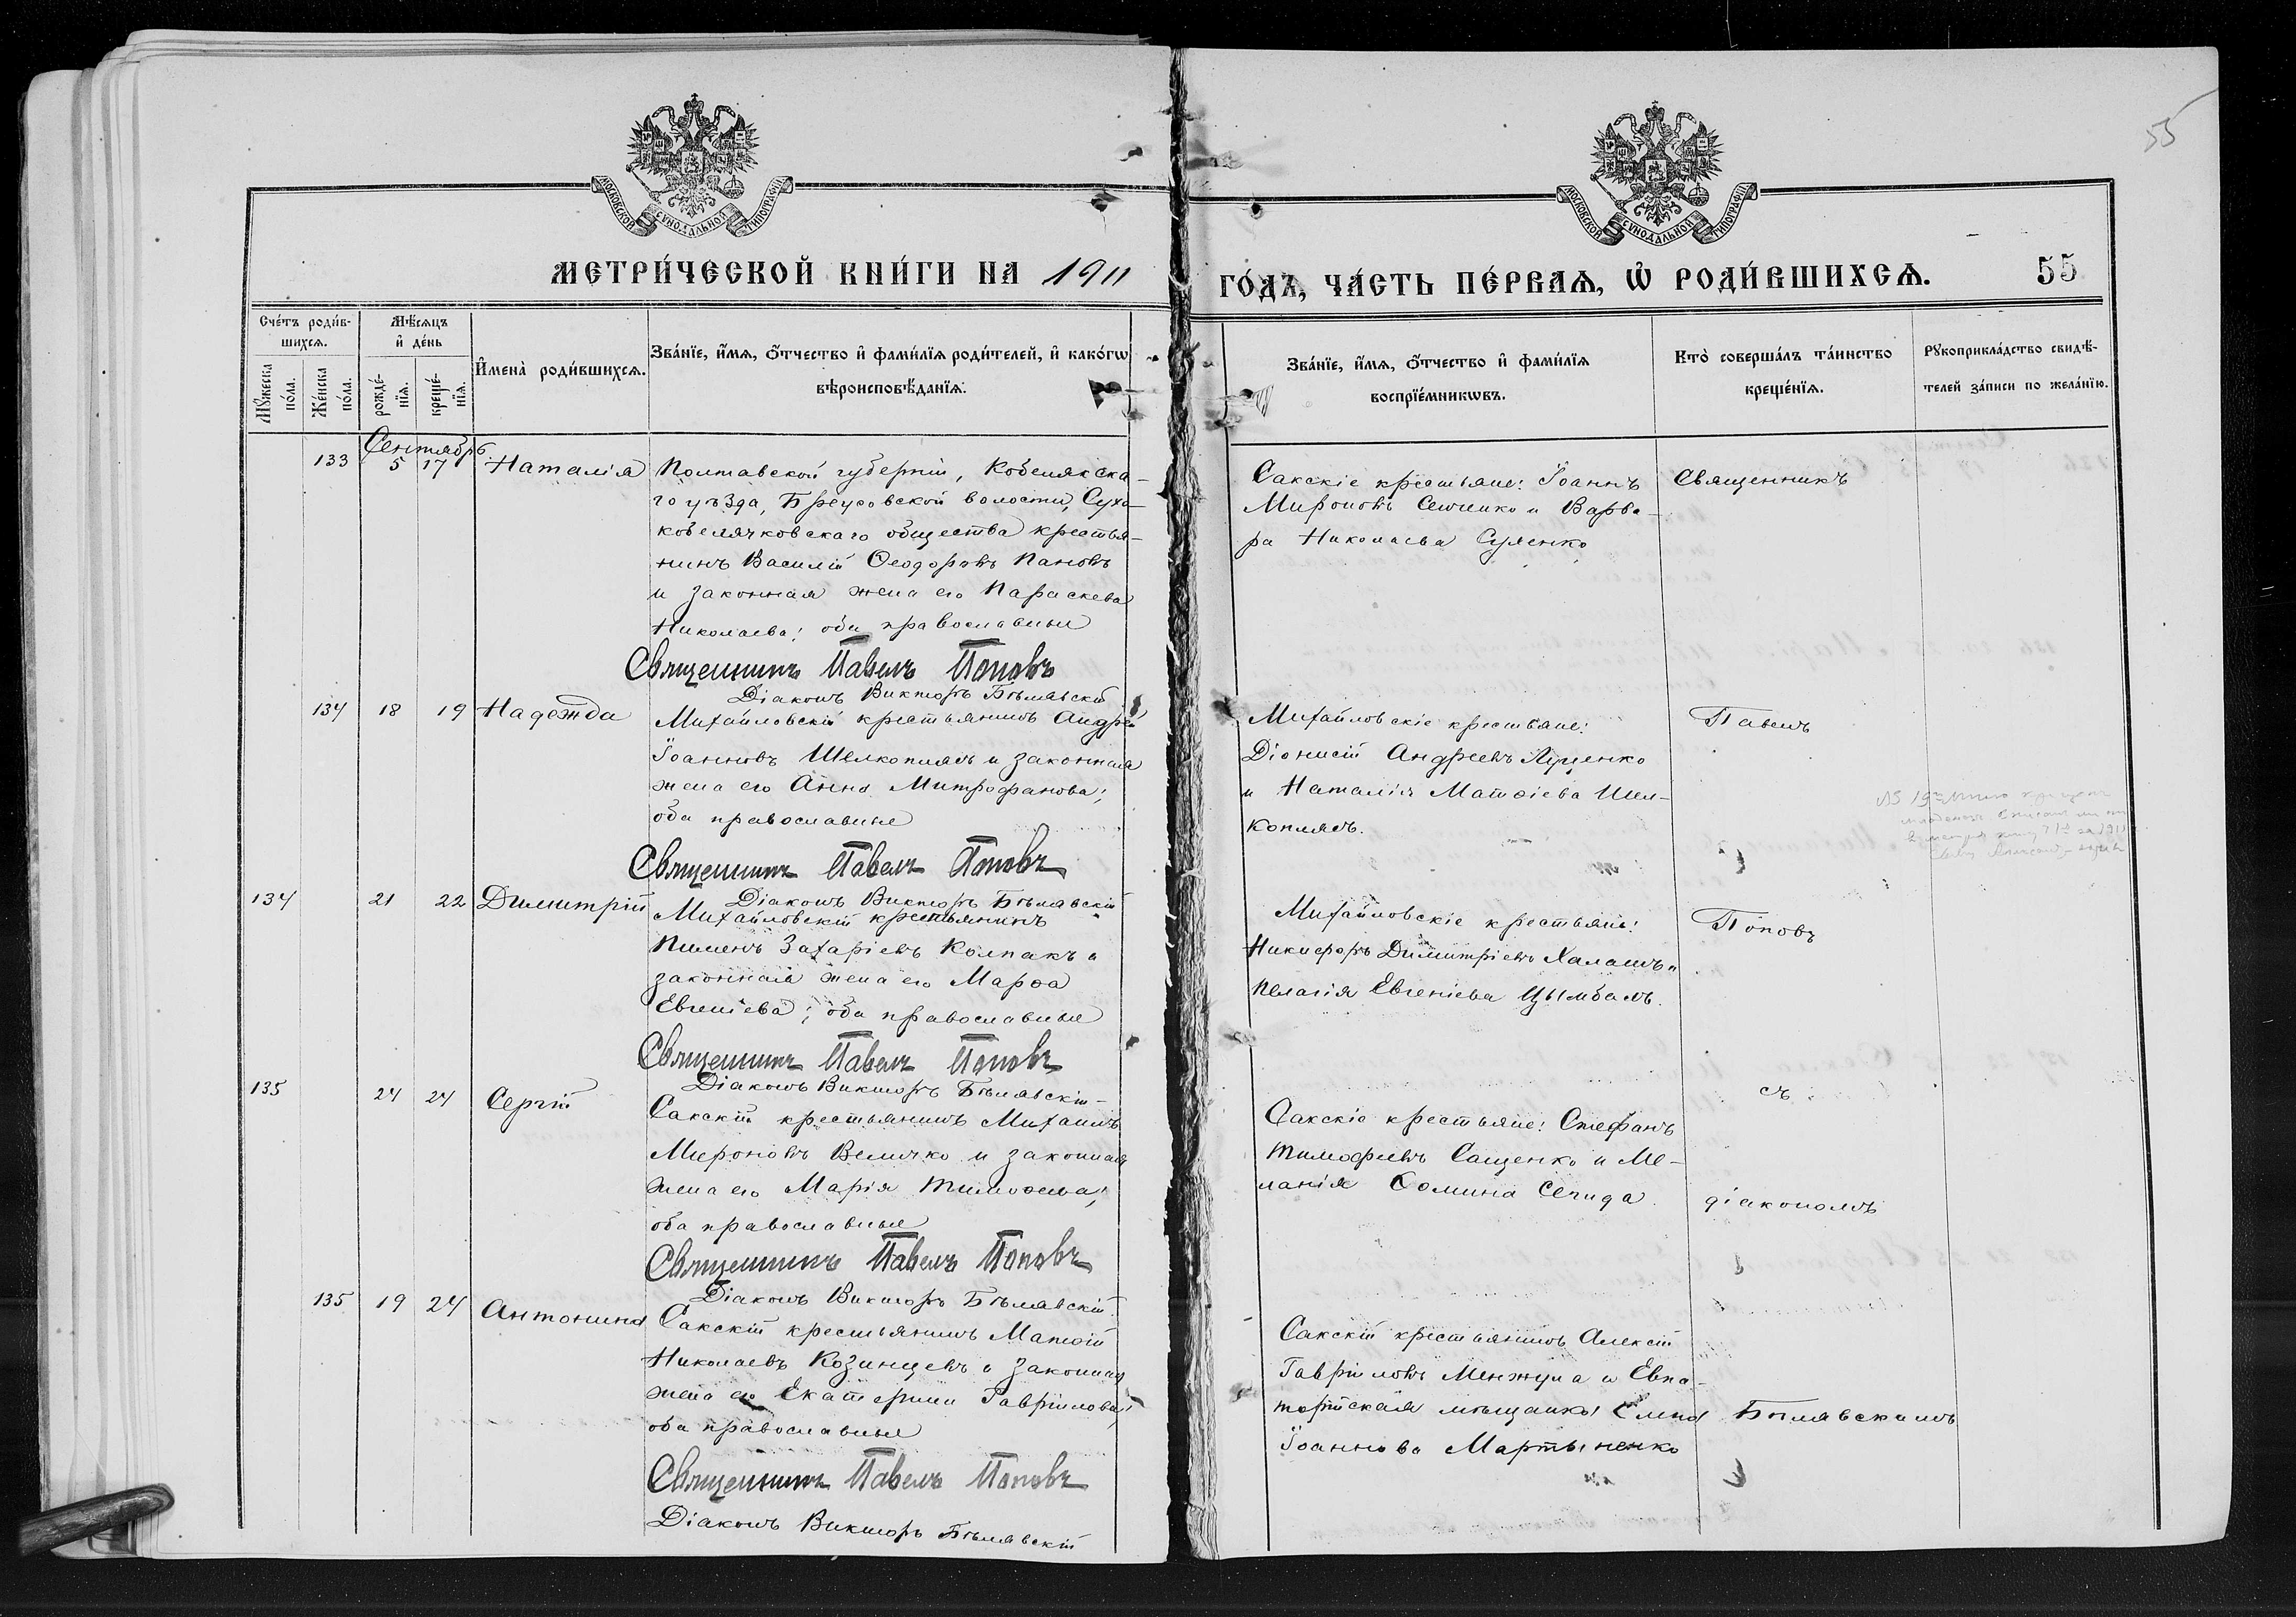 55
МОСКОВСКОЙ СѴНОДАЛЬНОЙ ТИПОГРАФІИ
МОСКОВСКОЙ СѴНОДАЛЬНОЙ ТИПОГРАФІИ
МЕТРИ́ЧЕСКОЙ КНИ́ГИ НА 1911
ГО́ДЪ, ЧА́СТЬ ПЕ́РВАѦ, Ѡ҆ РОДИ́ВШИХСѦ. 55
Сче́тъ роди́в-
шихсѧ.
Мꙋ́жеска по́ла.
Же́нска по́ла.
Мѣ́сѧцъ
и҆ де́нь
рожде́-
нїѧ.
креще́-
нїѧ.
И҆мена̀ роди́вшихсѧ.
Зва́нїе, и҆́мѧ, ѻ҆́тчество и҆ фами́лїѧ роди́телей, и҆ како́гѡ
вѣроисповѣ́данїѧ.
Зва́нїе, и҆́мѧ, ѻ҆́тчество и҆ фами́лїѧ
воспрїе́мникѡвъ.
Кто̀ соверша́лъ та́инство
креще́нїѧ.
Рꙋкоприкла́дство свидѣ́-
телей за́писи по жела́нїю.
Сентябрь
133 5 17 Наталія
Полтавской губерніи, Кобелякска-
го уѣзда, Бреусовской волости, Сухо-
кобелячковскаго общества крестья-
нинъ Василій Ѳеодоровъ Пановъ
и законная жена его Параскева
Николаева; оба православные
Священникъ Павелъ Поповъ
Діаконъ Викторъ Бѣлявскій
Сакскіе крестьяне: Іоаннъ
Мироновъ Сенченко и Варва-
ра Николаева Суленко
Священникъ
134 18 19 Надежда
Михайловскій крестьянинъ Андрей
Іоанновъ Шелкоплясъ и законная
жена его Анна Митрофанова;
оба православные
Священникъ Павелъ Поповъ
Діаконъ Викторъ Бѣлявскій
Михайловскіе крестьяне:
Діонисій Андреевъ Луценко
и Наталія Матѳіева Шел-
коплясъ.
Павелъ
134 21 22 Димитрій
Михайловскій крестьянинъ
Пименъ Захаріевъ Колпакъ и
законная жена его Марѳа
Евгеніева; оба православные
Священникъ Павелъ Поповъ
Діаконъ Викторъ Бѣлявскій
Михайловскіе крестьяне:
Никифоръ Димитріевъ Халашъ и
Пелагія Евгеніева Цымбалъ.
Поповъ
135 24 24 Сергій
Сакскій крестьянинъ Михаилъ
Мироновъ Величко и законная
жена его Марія Тимоѳеева;
оба православные
Священникъ Павелъ Поповъ
Діаконъ Викторъ Бѣлявскій
съ
Сакскіе крестьяне: Стефанъ
Тимофеевъ Сащенко и Ме-
ланія Ѳомина
діакономъ
135 19 24 Антонина
Сакскій крестьянинъ Матѳій
Николаевъ Козинцевъ и законная
жена его Екатерина Гавріилова;
оба православные
Священникъ Павелъ Поповъ
Діаконъ Викторъ Бѣлявскій
Сакскій крестьянинъ Алексій
Гавріиловъ Менжула и Евпа-
торійская мѣщанка Елена
Іоаннова Мартыненко
Бѣлявскимъ